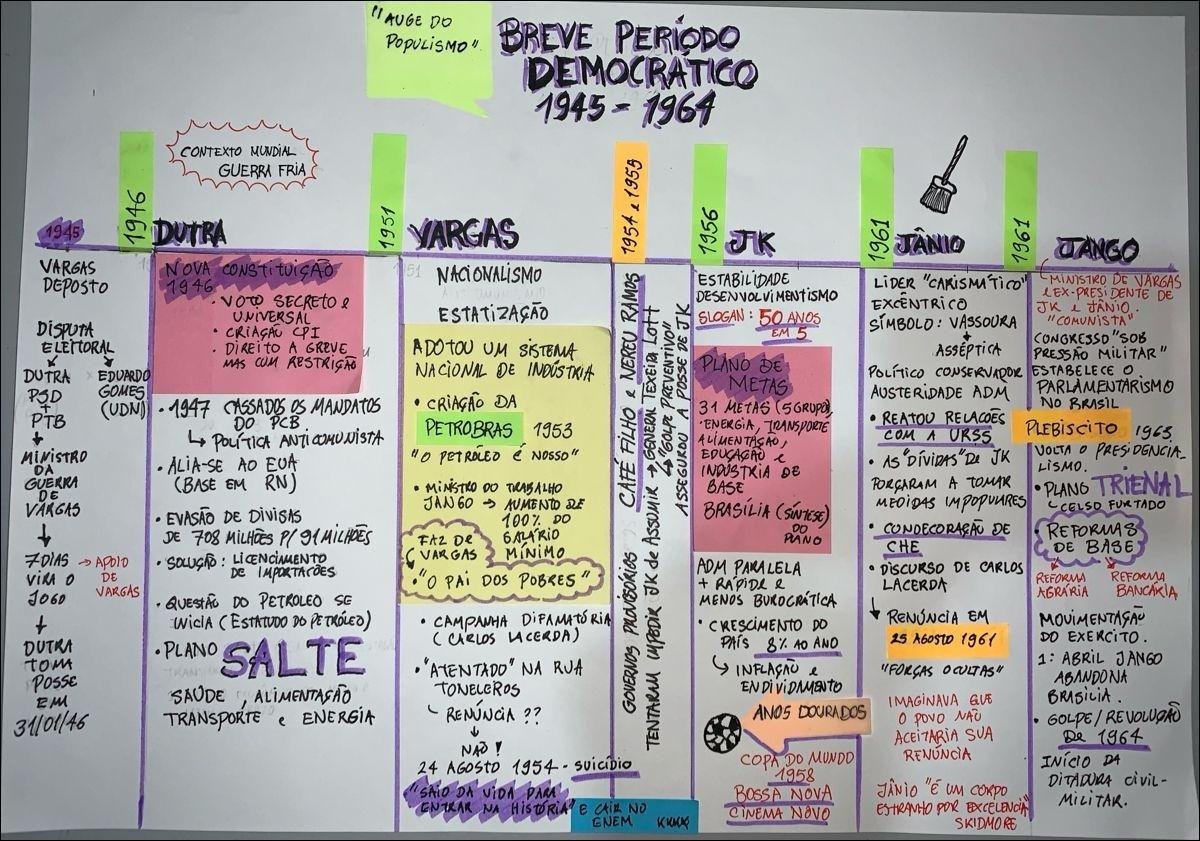 "AUGE DO
POPULISMO"
BREVE PERÍODO
DEMOCRÁTICO
1945 - 1964
CONTEXTO MUNDIAL
GUERRA FRIA
1945
VARGAS
DEPOSTO
DISPUTA
ELEITORAL
DUTRA x EDUARDO
PSD GOMES
+ (UDN)
PTB
MINISTRO
DA
GUERRA
DE
VARGAS
7 DIAS → APOIO
VIRA O DE
JOGO VARGAS
DUTRA
TOMA
POSSE
EM
31/01/46
1946
DUTRA
NOVA CONSTITUIÇÃO
1946
• VOTO SECRETO e
UNIVERSAL
• CRIAÇÃO CPI
• DIREITO A GREVE
MAS COM RESTRIÇÃO
• 1947 CASSADOS OS MANDATOS
DO PCB
↳ POLÍTICA ANTICOMUNISTA
• ALIA-SE AO EUA
(BASE EM RN)
• EVASÃO DE DIVISAS
DE 708 MILHÕES P/ 91 MILHÕES
• SOLUÇÃO: LICENCIAMENTO
DE IMPORTAÇÕES
• QUESTÃO DO PETROLEO SE
INICIA (ESTATUDO DO PETRÓLEO)
• PLANO SALTE
SAÚDE, ALIMENTAÇÃO
TRANSPORTE e ENERGIA
1951
VARGAS
NACIONALISMO
ESTATIZAÇÃO
ADOTOU UM SISTEMA
NACIONAL DE INDÚSTRIA
• CRIAÇÃO DA
PETROBRAS 1953
"O PETRÓLEO É NOSSO"
• MINISTRO DO TRABALHO
JANGO → AUMENTO DE
100% DO
SALÁRIO
MÍNIMO
FAZ DE
VARGAS
• "O PAI DOS POBRES"
• CAMPANHA DIFAMATÓRIA
(CARLOS LACERDA)
• "ATENTADO" NA RUA
TONELEROS
↳ RENÚNCIA ??
NÃO!
24 AGOSTO 1954 - SUICÍDIO
"SAIO DA VIDA PARA
ENTRAR NA HISTÓRIA"
E CAIR NO
ENEM KKKK
1954 e 1955
GOVERNOS PROVISÓRIOS CAFÉ FILHO e NEREU RAMOS
TENTARAM IMPEDIR JK de ASSUMIR → GENERAL TEXEIRA LOTT
↳ "GOLPE PREVENTIVO"
ASSEGUROU A POSSE DE JK
1956
JK
ESTABILIDADE
DESENVOLVIMENTISMO
SLOGAN: 50 ANOS
EM 5
PLANO DE
METAS
31 METAS (5 GRUPO).
ENERGIA, TRANSPORTE
ALIMENTAÇÃO,
EDUCAÇÃO e
INDÚSTRIA DE
BASE
BRASÍLIA (SÍNTESE)
DO
PLANO
ADM PARALELA
+ RÁPIDE e
MENOS BUROCRÁTICA
• CRESCIMENTO DO
PAÍS 8% AO ANO
↳ INFLAÇÃO e
ENDIVIDAMENTO
ANOS DOURADOS
COPA DO MUNDO
1958
BOSSA NOVA
CINEMA NOVO
1961
JÂNIO
LIDER "CARISMÁTICO"
EXCÊNTRICO
SÍMBOLO: VASSOURA
ASSÉPTICA
POLÍTICO CONSERVADOR
AUSTERIDADE ADM
• REATOU RELAÇÕES
COM A URSS
• AS "DÍVIDAS" DE JK
FORÇARAM A TOMAR
MEDIDAS IMPOPULARES
• CONDECORAÇÃO DE
CHE
• DISCURSO DE CARLOS
LACERDA
RENÚNCIA EM
25 AGOSTO 1961
"FORÇAS OCULTAS"
IMAGINAVA QUE
O POVO NÃO
ACEITARIA SUA
RENÚNCIA
JÂNIO "É UM CORPO
ESTRANHO POR EXCELENCIA"
SKIDMORE
1961
JANGO
(MINISTRO DE VARGAS
e EX-PRESIDENTE DE
JK e JÂNIO.
"COMUNISTA")
CONGRESSO "SOB
PRESSÃO MILITAR"
ESTABELECE O
PARLAMENTARISMO
NO BRASIL
PLEBISCITO 1963
VOLTA O PRESIDENCIA-
LISMO.
• PLANO TRIENAL
↳ CELSO FURTADO
• REFORMAS
DE BASE
REFORMA REFORMA
AGRÁRIA BANCÁRIA
MOVIMENTAÇÃO
DO EXERCITO.
1: ABRIL JANGO
ABANDONA
BRASILIA.
• GOLPE/REVOLUÇÃO
DE 1964
INÍCIO DA
DITADURA CIVIL-
MILITAR.